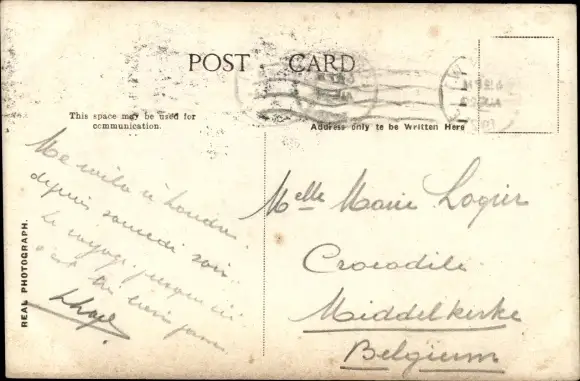 POST CARD
This space may be used for
communication.
Address only to be Written Here
REAL PHOTOGRAPH.
Me voila à Londres
depuis samedi soir.
Le voyage jusqu'ici
s'est très bien passé
Melle Marie Logier
Crocodile
Middelkerke
Belgium